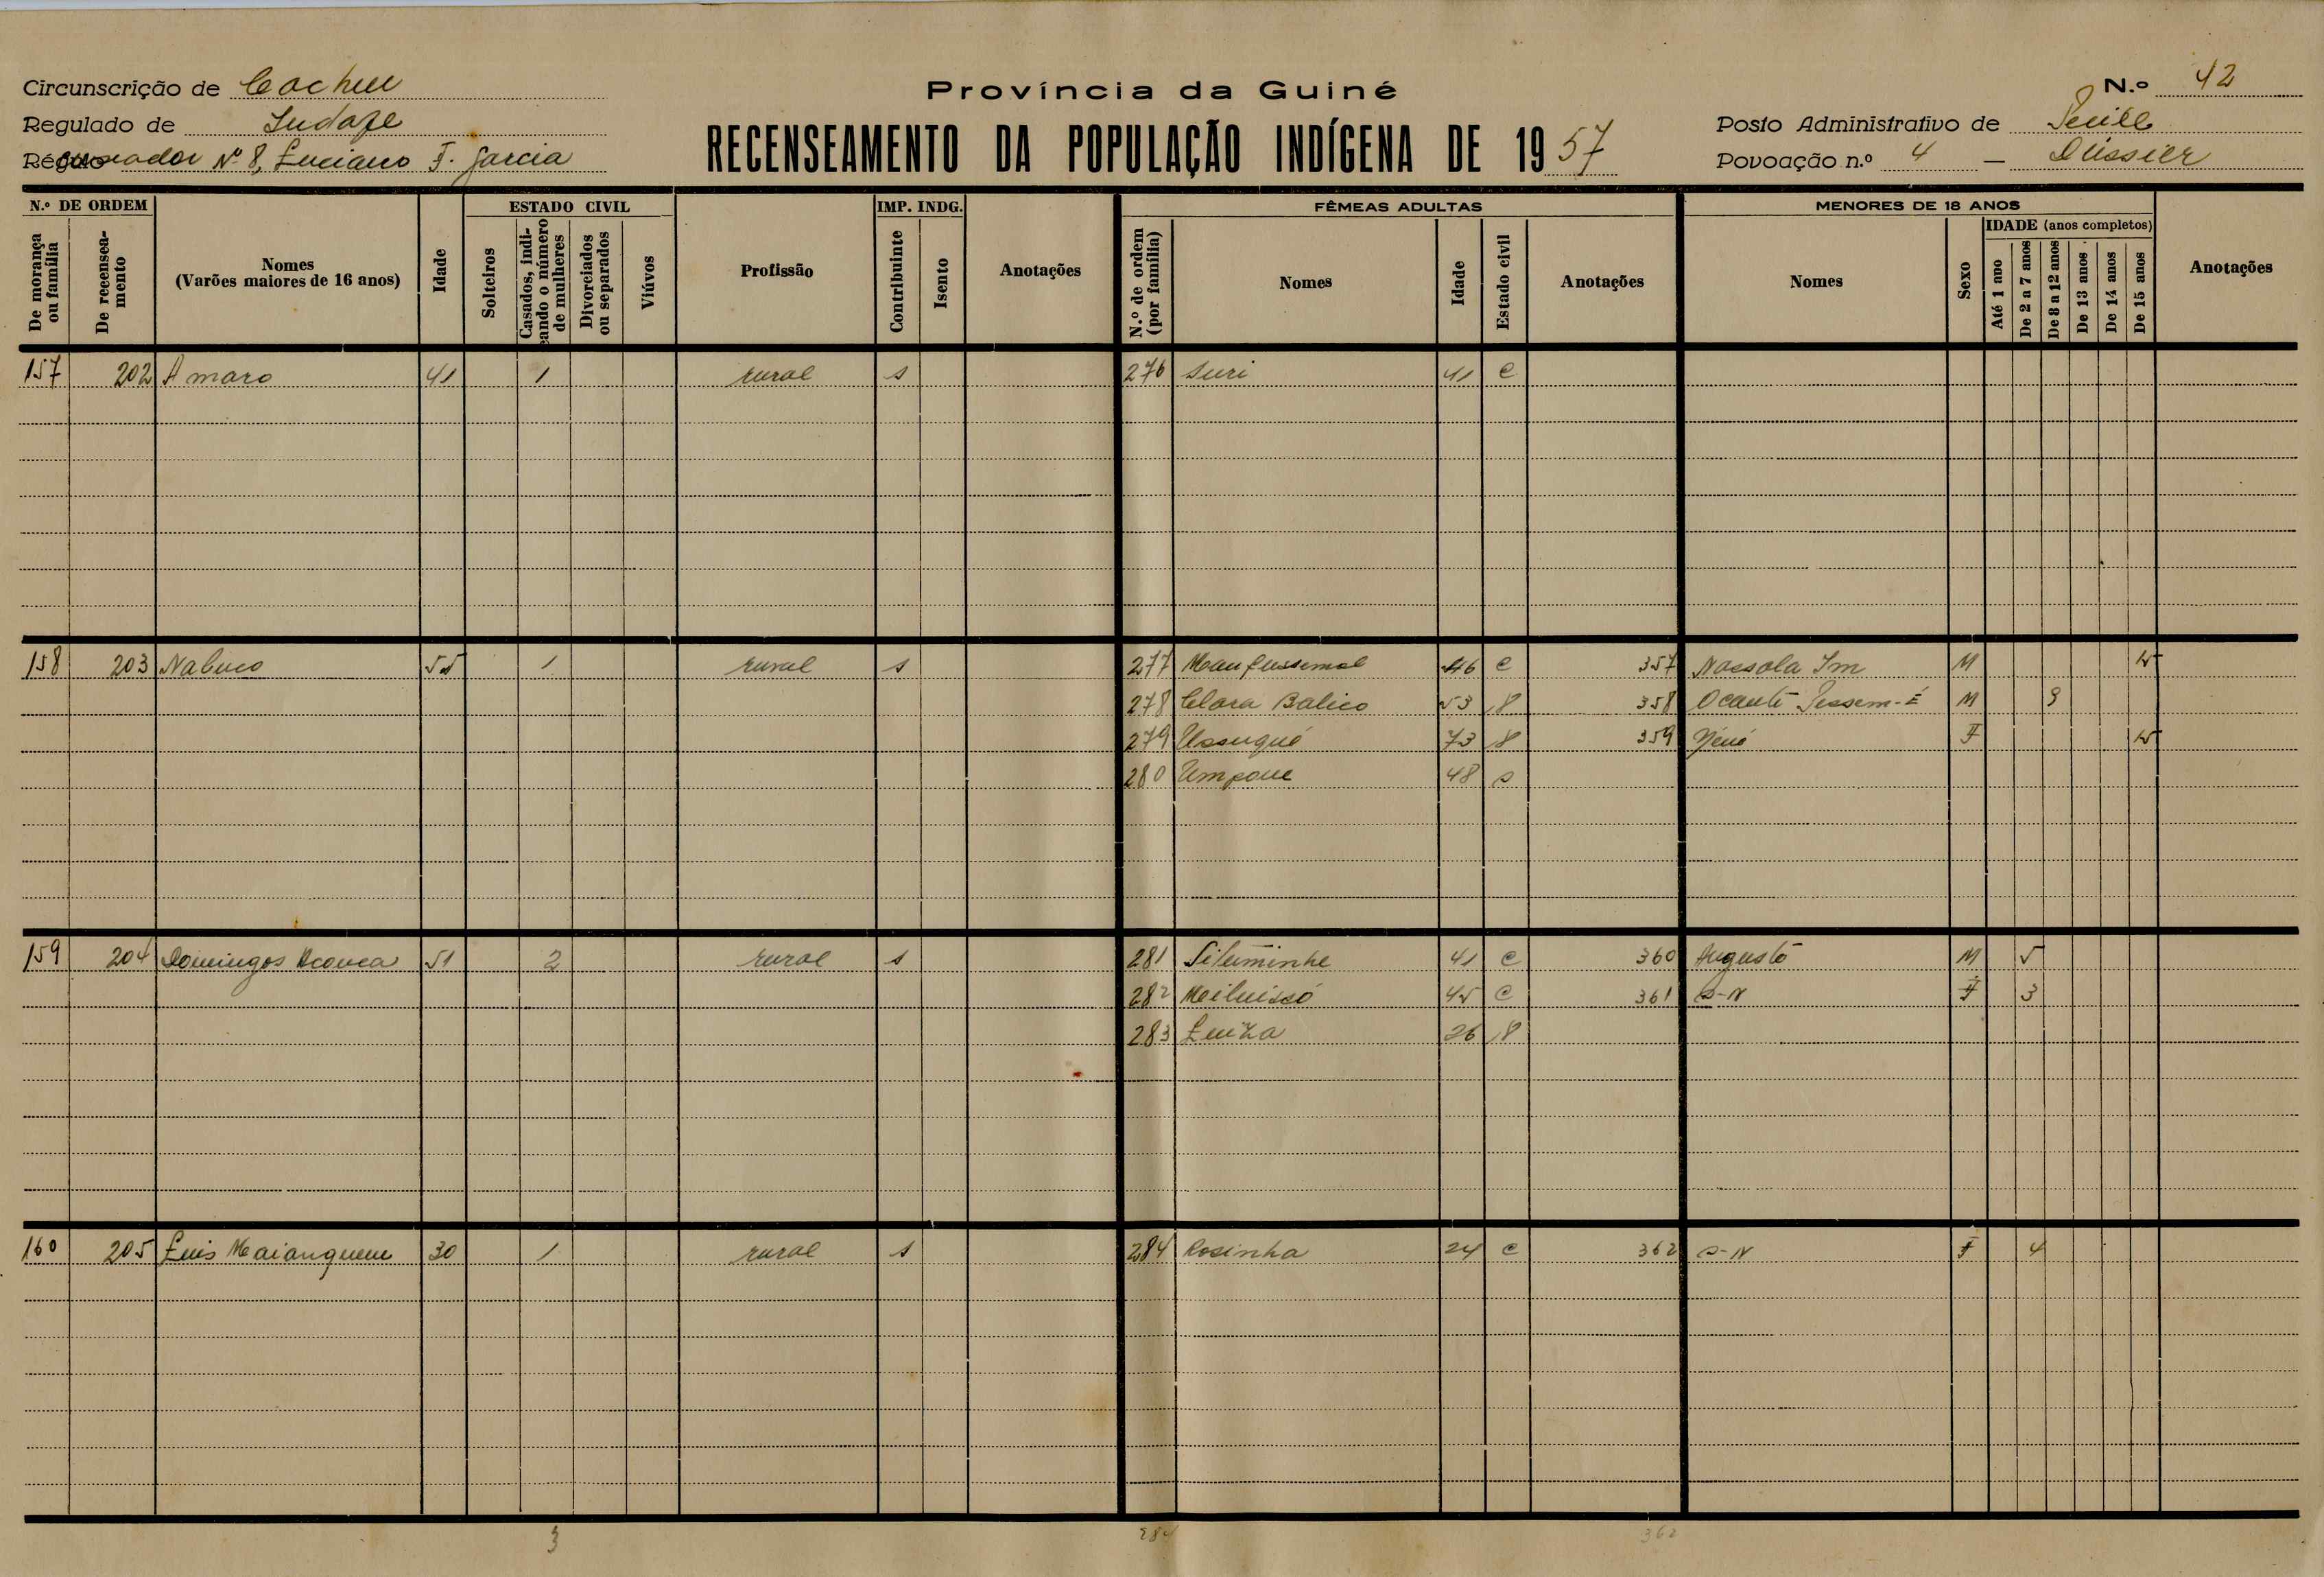 Circunscrição de Cacheu
Província da Guiné
N.º 42
Regulado de
Posto Administrativo de
Régulo Nº 8, Luciano F. Garcia
RECENSEAMENTO DA POPULAÇÃO INDÍGENA DE 1957
Povoação n.º 4 —
N.º DE ORDEM
ESTADO CIVIL
IMP. INDG.
FÊMEAS ADULTAS
MENORES DE 18 ANOS
IDADE (anos completos)
De morança ou família
De recenseamento
Nomes
(Varões maiores de 16 anos)
Idade
Solteiros
Casados, indicando o número de mulheres
Divorciados ou separados
Viúvos
Profissão
Contribuinte
Isento
Anotações
N.º de ordem (por família)
Nomes
Idade
Estado civil
Anotações
Nomes
Sexo
Até 1 ano
De 2 a 7 anos
De 8 a 12 anos
De 13 anos
De 14 anos
De 15 anos
Anotações
157 202 Amaro 41 1 rural s 276 Suri 41 c
158 203 Nabuco 55 1 rural s 277 46 c 357 M 15
278 Clara Balico 53 358 M 9
279 73 359 F 15
280 48 s
159 204 Domingos 51 2 rural s 281 41 c 360 Augusto M 5
282 45 c 361 s-N F 3
283 Luiza 26
160 205 Luis 30 1 rural s 284 Rosinha 24 c 362 s-N F 4
3 284 362